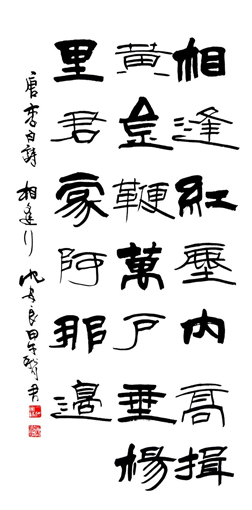 相逢紅塵內高揖
黃金鞭萬戶垂楊
里君家阿那邊
唐李白詩 相逢行